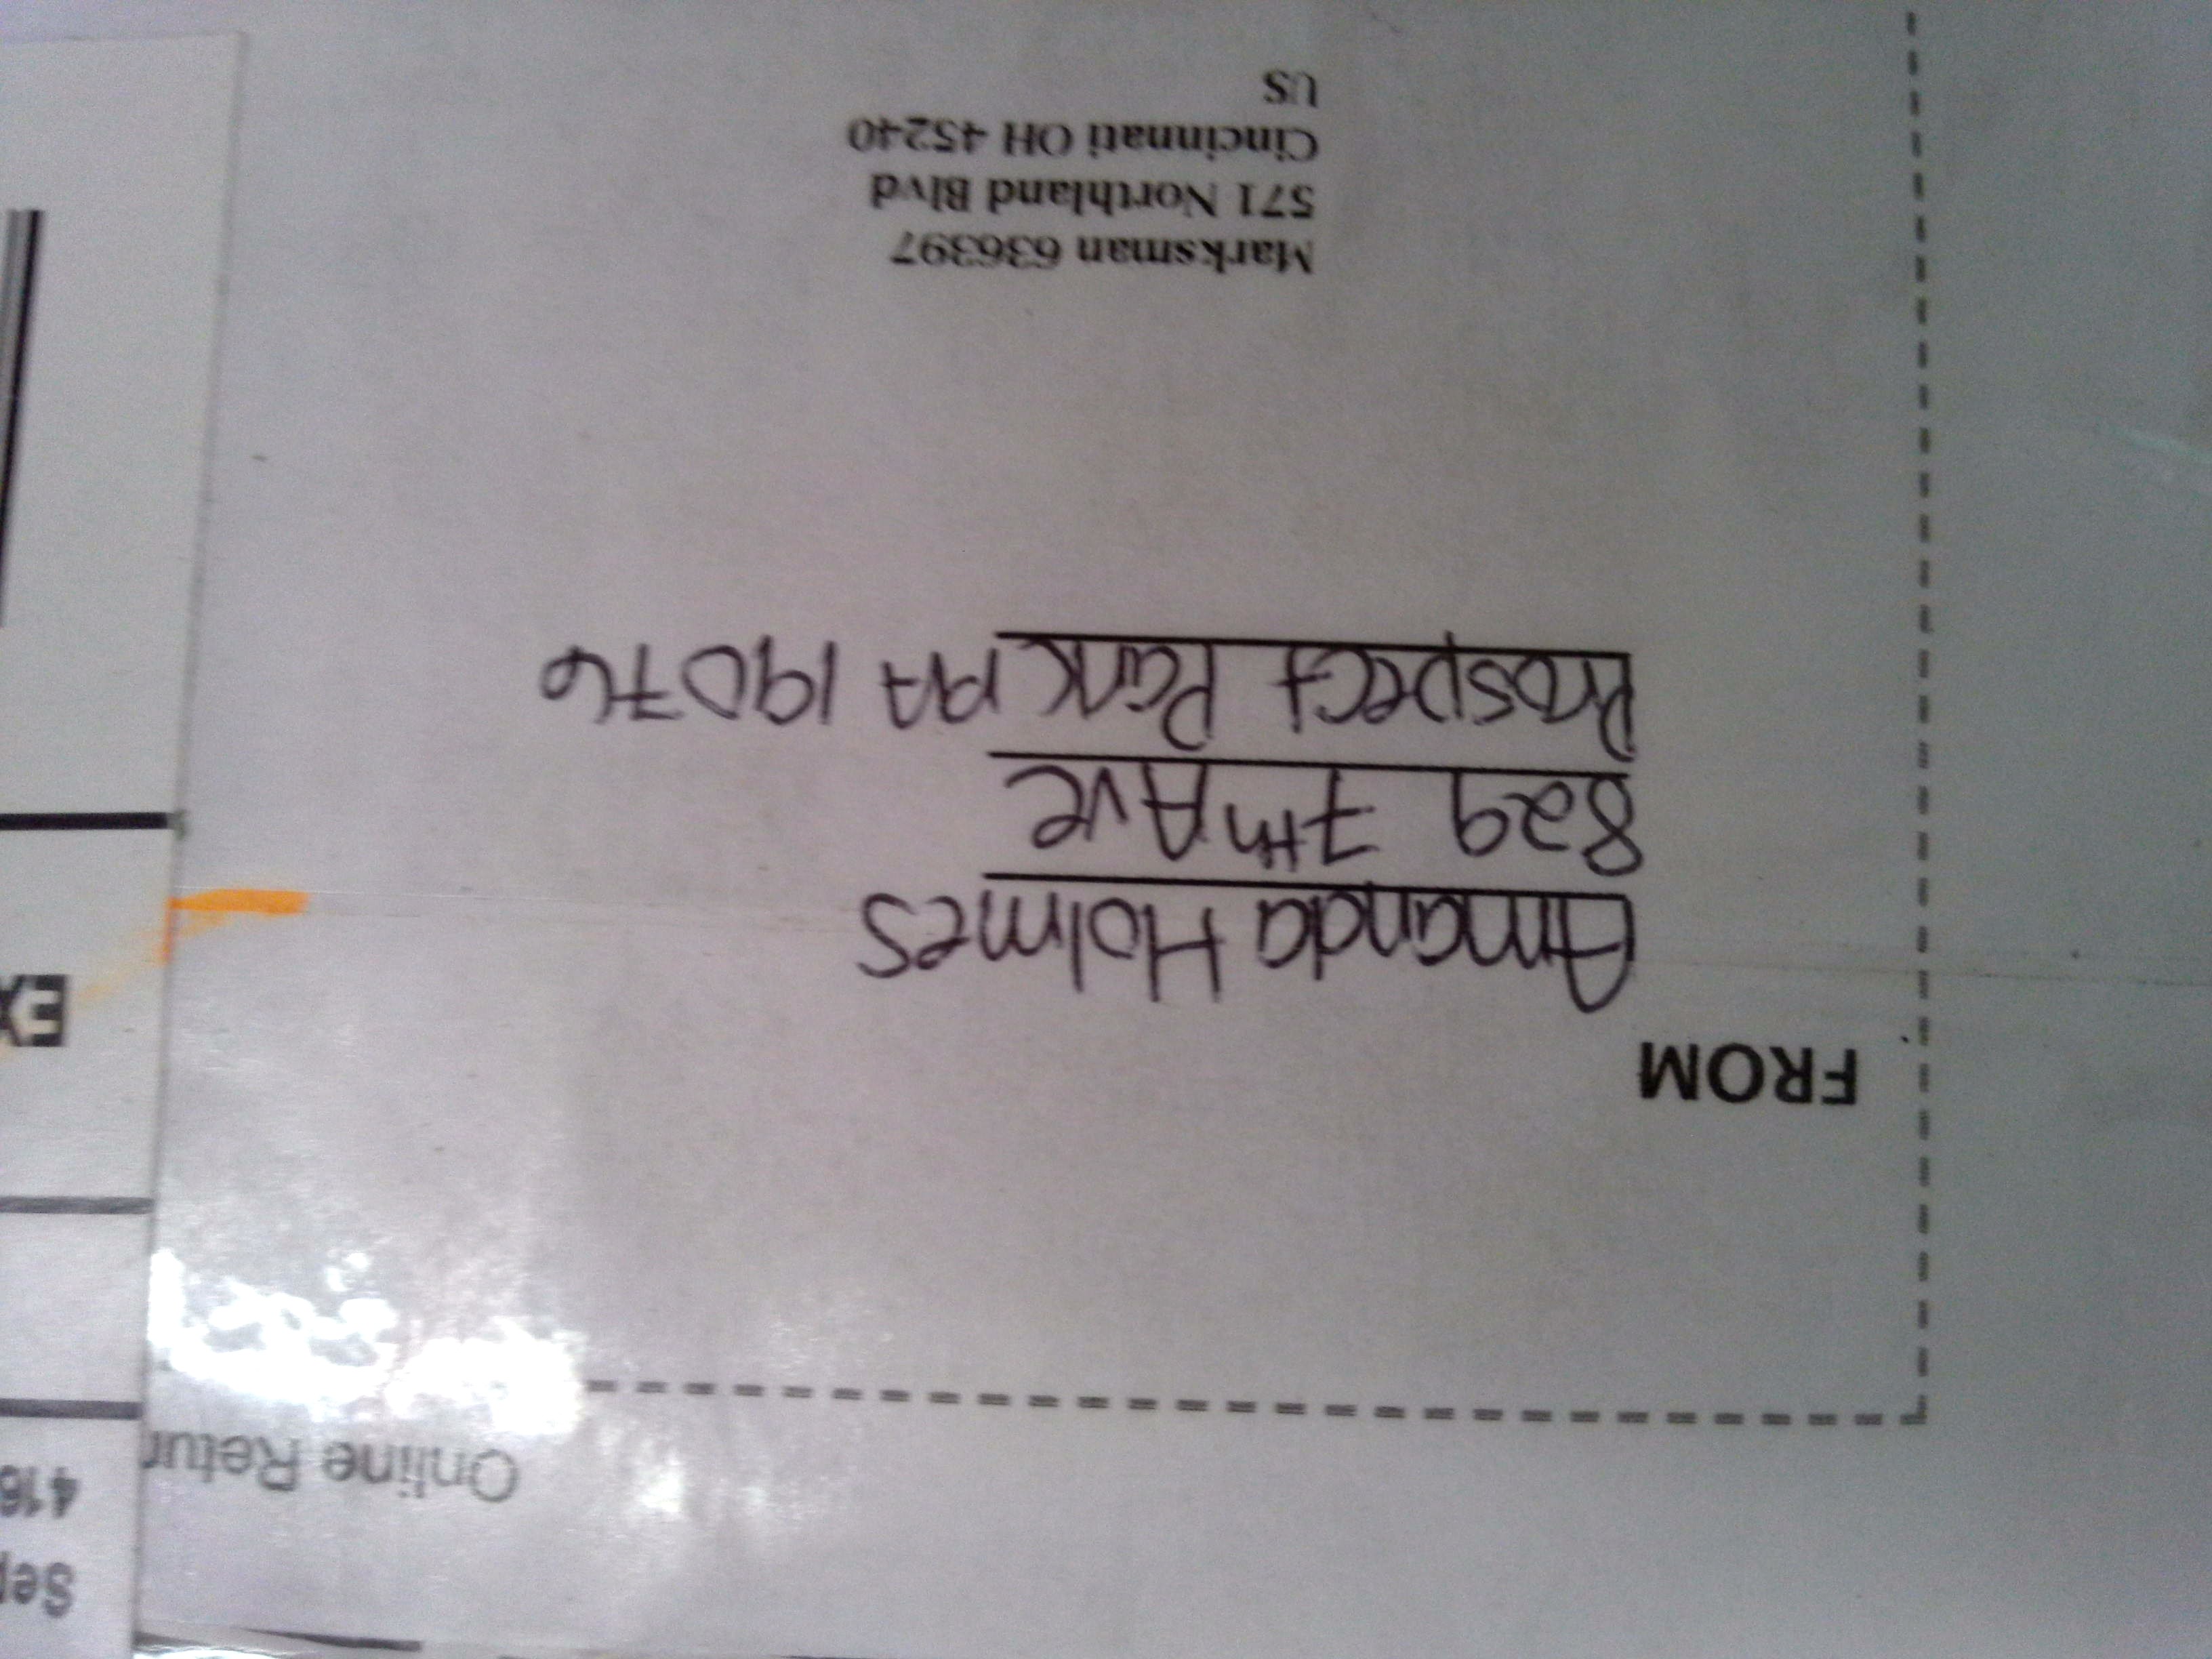 Online Retur
FROM
Amanda Holmes
829 7th Ave
Prospect Park PA 19076
Marksman 636397
571 Northland Blvd
Cincinnati OH 45240
US
Sep
416
EX